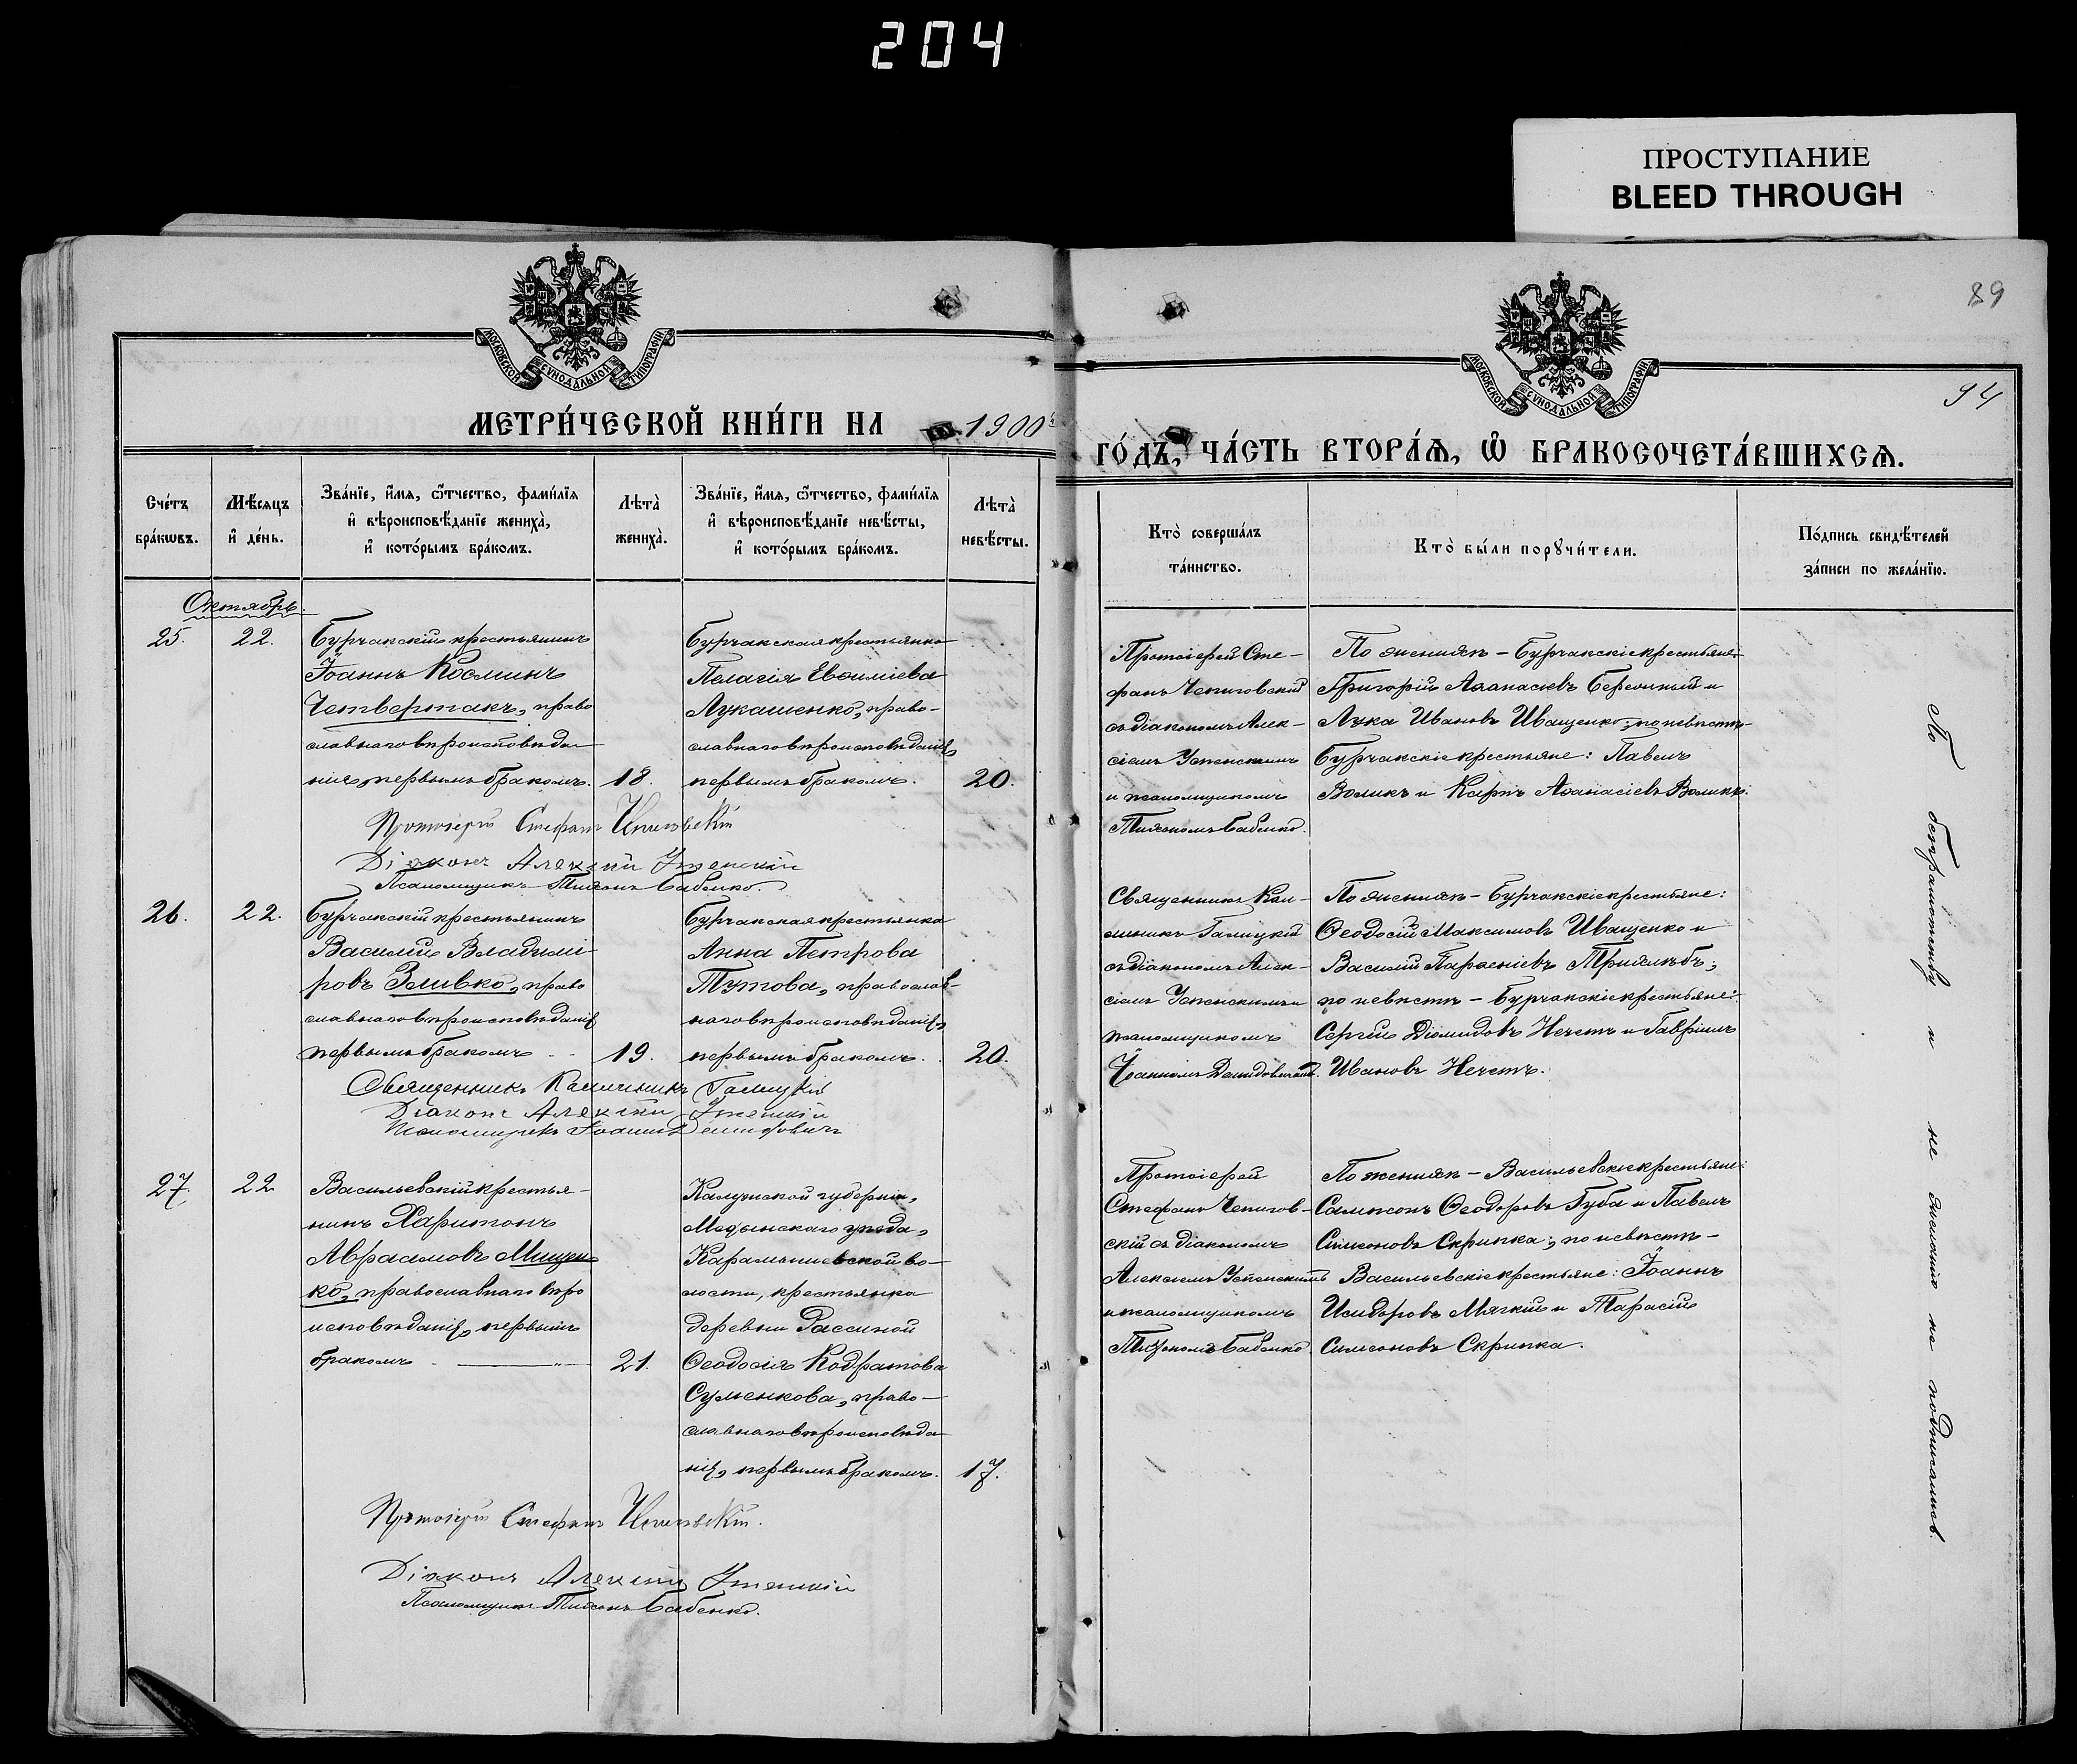 204
ПРОСТУПАНИЕ
BLEED THROUGH
89
94
МОСКОВСКОЙ СУНОДАЛЬНОЙ ТИПОГРАФІИ.
МОСКОВСКОЙ СУНОДАЛЬНОЙ ТИПОГРАФІИ.
МЕТРИ́ЧЕСКОЙ КНИ́ГИ НА 1900
ГО́ДЪ, ЧА́СТЬ ВТОРА́Ѧ, Ѽ БРАКОСОЧЕТА́ВШИХСѦ.
Сче́тъ
бра́кѡвъ.
Мѣ́сяцъ
и҆ де́нь.
Зва́нїе, и҆́мѧ, ѻ҆́тчество, фами́лїѧ
и҆ вѣроисповѣ́данїе жениха̀,
и҆ кото́рымъ бра́комъ.
Лѣта̀
жениха̀.
Зва́нїе, и҆́мѧ, ѻ҆́тчество, фами́лїѧ
и҆ вѣроисповѣ́данїе невѣ́сты,
и҆ кото́рымъ бра́комъ.
Лѣта̀
невѣ́сты.
Кто̀ соверша́лъ
та́инство.
Кто̀ бы́ли порꙋчи́тели.
По́дпись свидѣ́телей
за́писи по жела́нїю.
Октябрь.
25.
22.
Бурчакскій крестьянинъ
Іоаннъ Косминъ
Четвертакъ, право
славнаго вѣроисповѣда
нія, первымъ бракомъ.
18.
Бурчакская крестьянка
Пелагія Евѳиміева
Лукашенко, право-
славнаго вѣроисповѣданія,
первымъ бракомъ.
20.
Протоіерей Сте-
фанъ Чепиговскій
съ діакономъ Алек-
сіемъ Успенскимъ
и псаломщикомъ
Тихономъ Бабенко.
По женихѣ – Бурчакскіе крестьяне:
Григорій Аѳанасіевъ и
Лука Ивановъ Иващенко; по невѣстѣ-
Бурчакскіе крестьяне: Павелъ
Воликъ и Карпъ Аѳанасіевъ Воликъ.
Протоіерей Стефанъ Чепиговскій
Діаконъ Алексій Успенскій
Псаломщикъ Тихонъ Бабенко.
26.
22.
Бурчакскій крестьянинъ
Василій Владимі
ровъ Зливко, право
славнаго вѣроисповѣданія
первымъ бракомъ
19.
Бурчакская крестьянка
Анна Петрова
Тутова, православ-
наго вѣроисповѣданія,
первымъ бракомъ.
20.
Священникъ Кал-
линикъ Галицкій
съ діакономъ Алек-
сіемъ Успенскимъ и
псаломщикомъ
Іоанномъ Демидовичемъ.
По женихѣ – Бурчакскіе крестьяне:
Ѳеодосій Максимовъ Иващенко и
Василій Парѳеніевъ
по невѣстѣ – Бурчакскіе крестьяне:
Сергій Діомидовъ Нечетъ и Гавріилъ
Ивановъ Нечетъ.
Священникъ Каллиникъ Галицкій
Діаконъ Алексій Успенскій
Псаломщикъ Іоаннъ Демидовичъ
27.
22
Васильевскій крестья-
нинъ Харитонъ
Авраамовъ Мищен
ко, православнаго вѣро
исповѣданія, первымъ
бракомъ
21.
Калужской губерніи,
Медынскаго уѣзда,
во-
лости, крестьянка
деревни
Ѳеодосія Кодратова
Сульенкова, право-
славнаго вѣроисповѣда
нія, первымъ бракомъ.
17.
Протоіерей
Стефанъ Чепигов-
скій съ діакономъ
Алексіемъ Успенскимъ
и псаломщикомъ
Тихономъ Бабенко
По женихѣ – Васильевскіе крестьяне:
Сампсонъ Ѳеодоровъ Губа и Павелъ
Симеоновъ Скрипка; по невѣстѣ –
Васильевскіе крестьяне: Іоаннъ
Исидоровъ Мягкій и Тарасій
Симеоновъ Скрипка.
Протоіерей Стефанъ Чепиговскій.
Діаконъ Алексій Успенскій
Псаломщикъ Тихонъ Бабенко.
По безграмотству и не желанію не подписались.